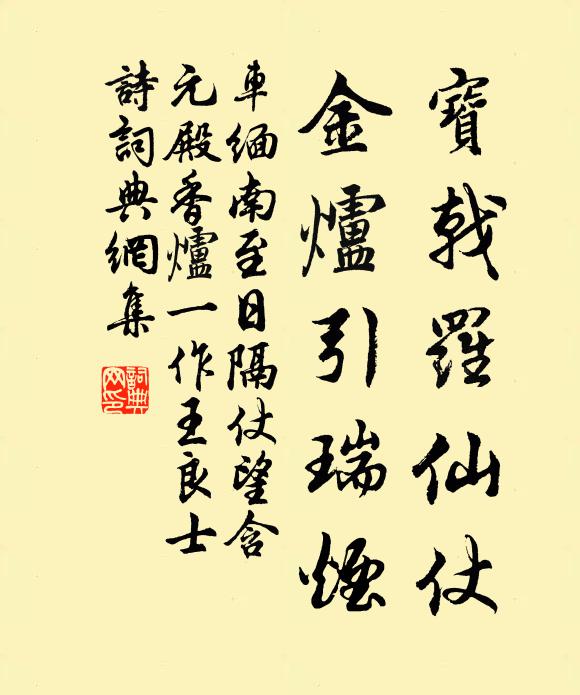 寶戟羅仙仗
金爐引瑞煙
車緬南至日隔仗望含
元殿香爐一作王良士
詩詞典網集
詞典
网印